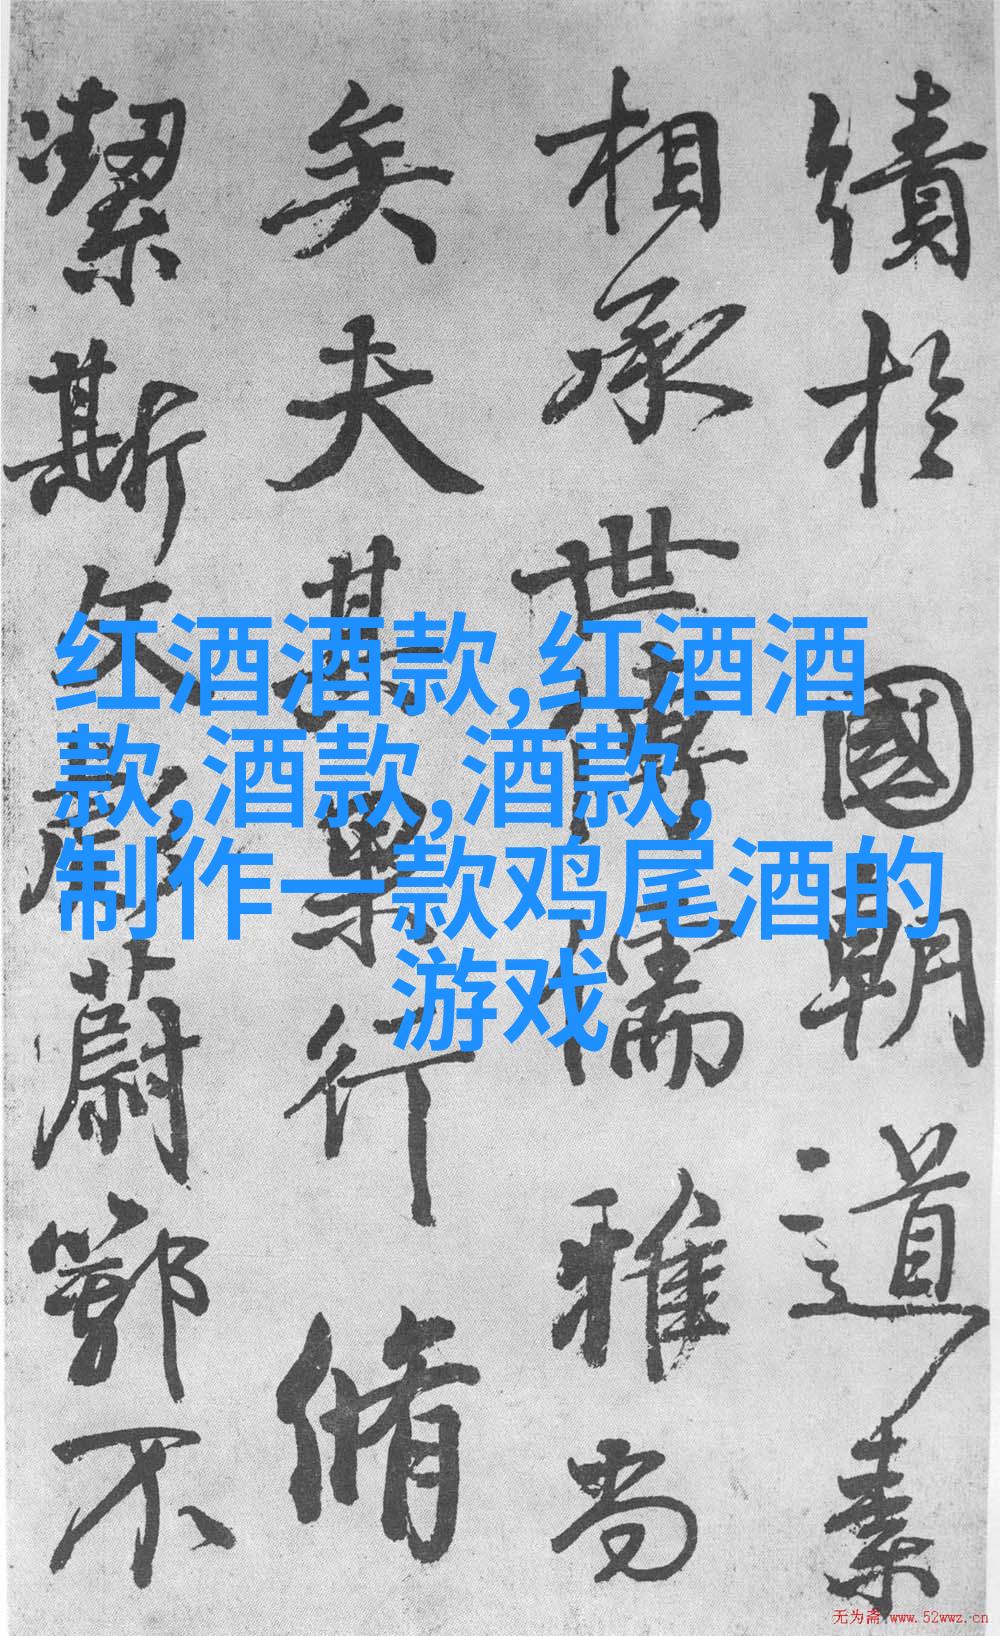 績於國朝道素
相承世傳儒雅尚
矣夫其果行脩
潔斯文彪蔚鄂不
红酒酒款,红酒酒
款,酒款,酒款,
制作一款鸡尾酒的
游戏
无为斋 www.52wwz.cn